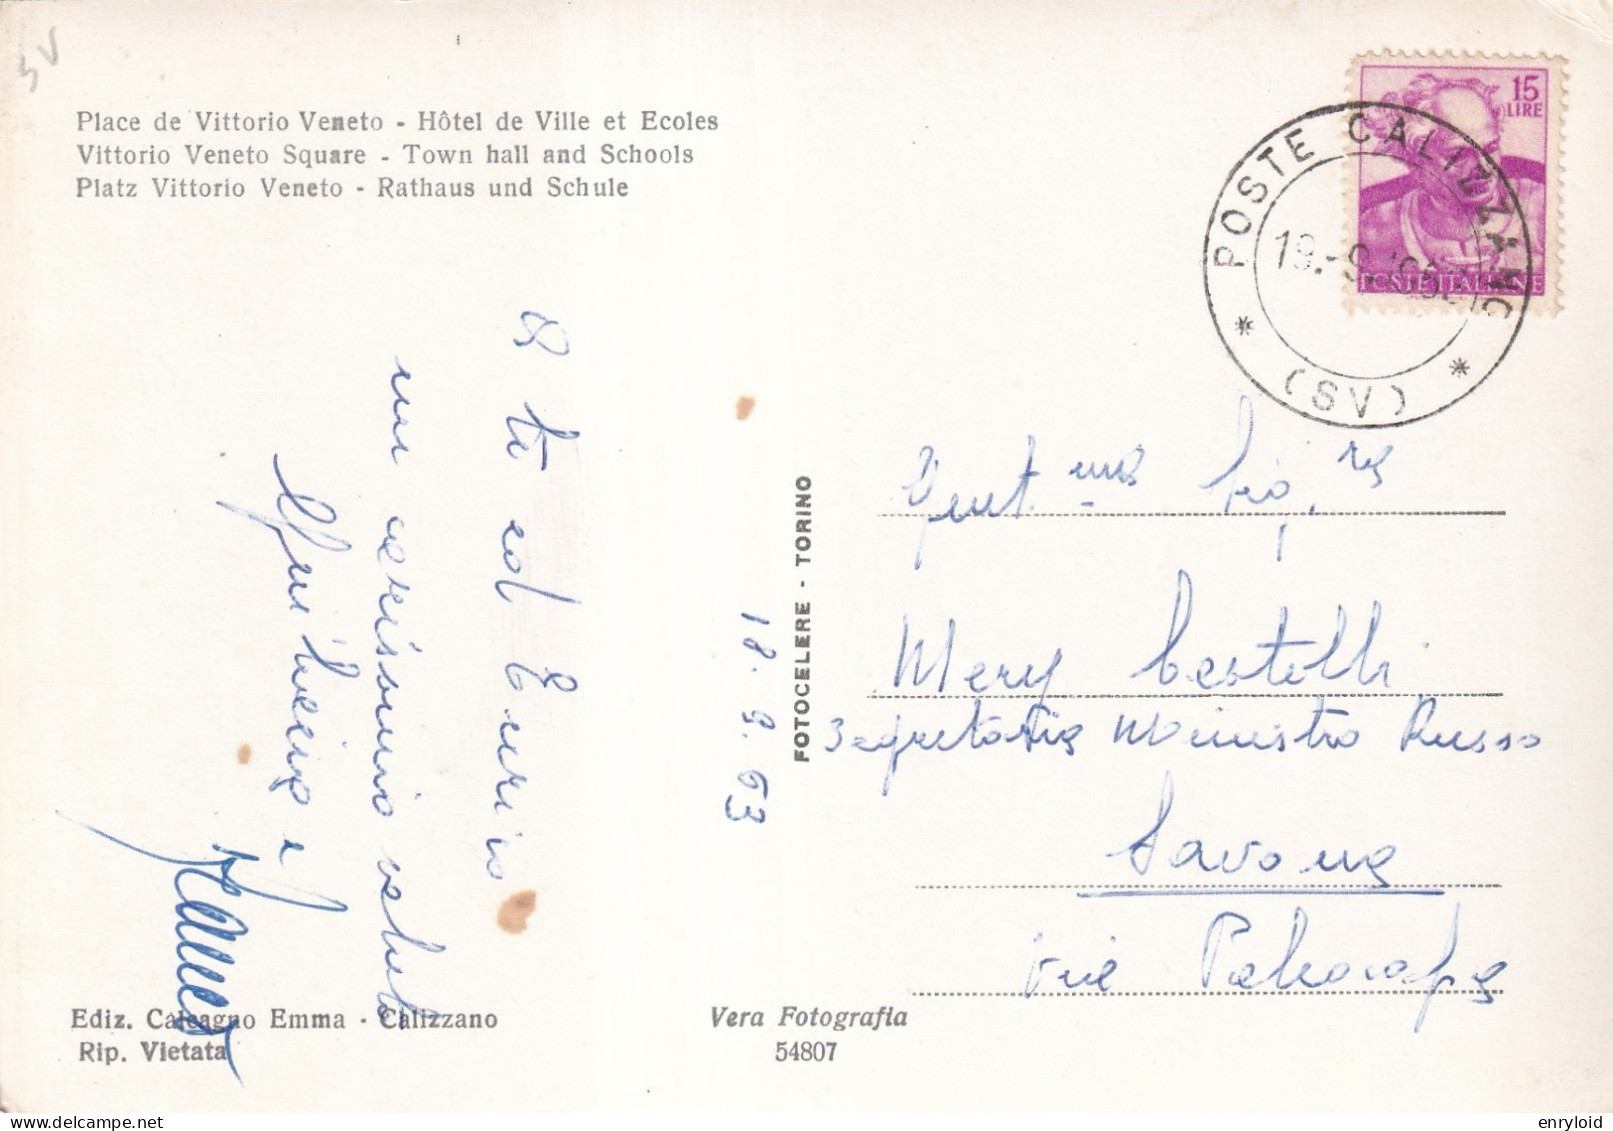 SV
Place de Vittorio Veneto - Hôtel de Ville et Ecoles
Vittorio Veneto Square - Town hall and Schools
Platz Vittorio Veneto - Rathaus und Schule
15
LIRE
POSTE ITALIANE
POSTE CALIZZANO
19.-9.
(SV)
A te ed Enrico
un carissimo saluto
18.9.63
FOTOCELERE - TORINO
Gent.ma Sig.ra
Mery
Segretaria Ministro Russo
Savona
Via Paleocapa
Ediz. Calcagno Emma - Calizzano
Rip. Vietata
Vera Fotografia
54807
enryloid